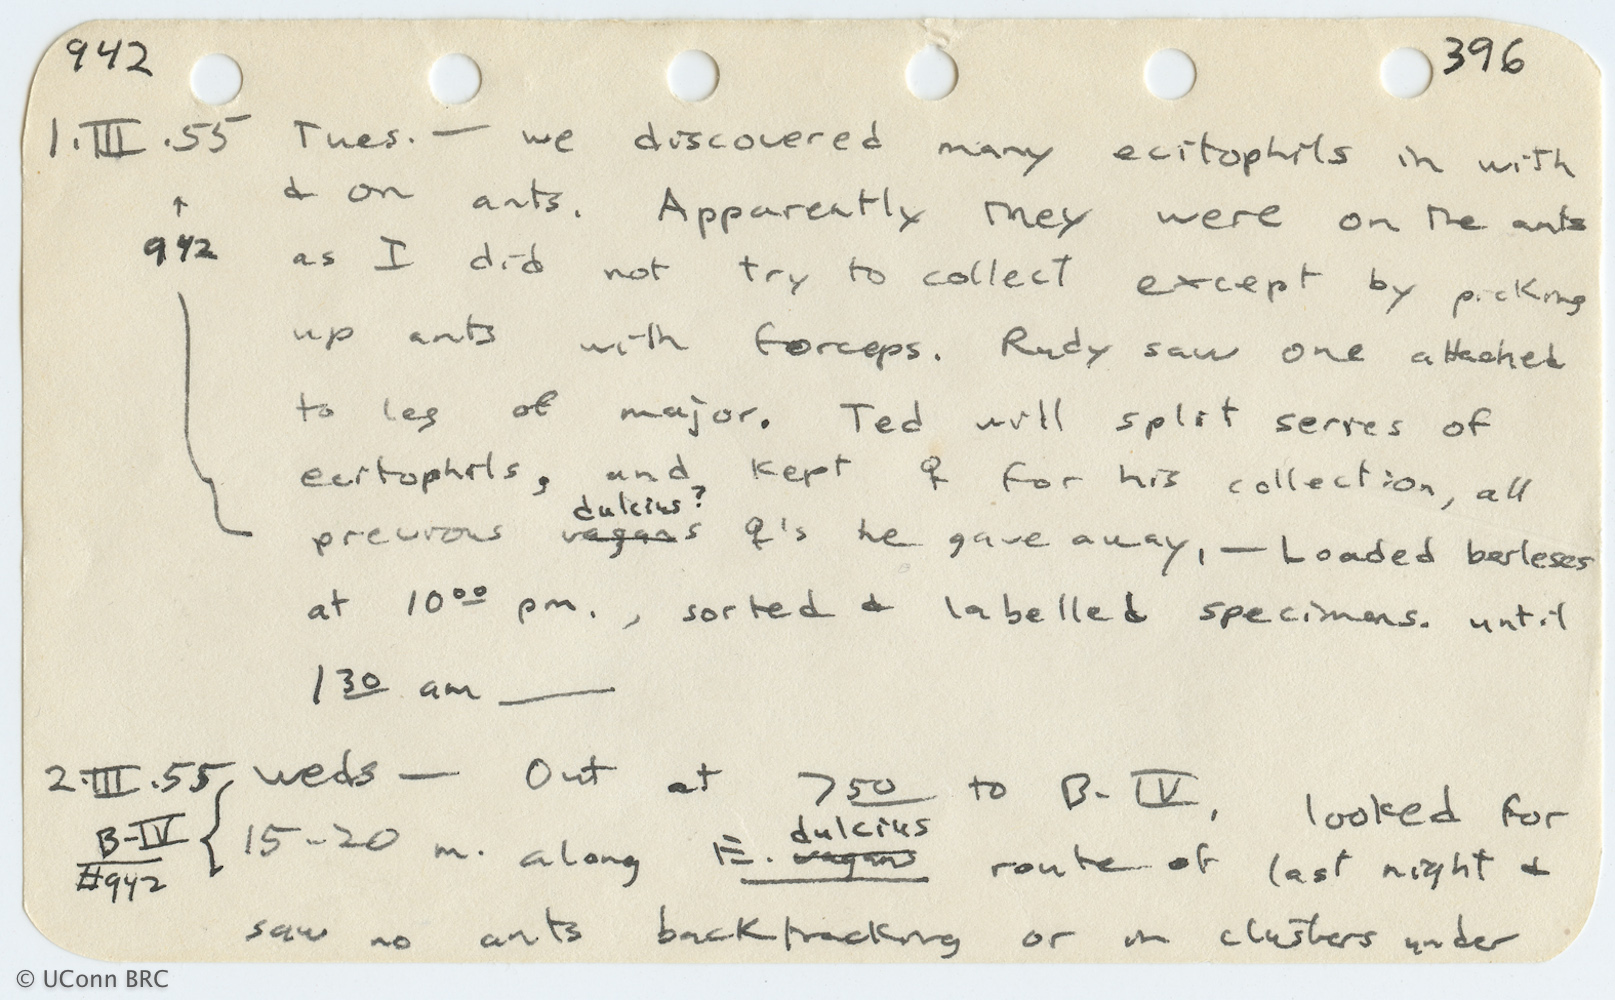 942 396
1.III.55 Tues. — we discovered many ecitophils in with
↑ & on ants. Apparently they were on the ants
942 as I did not try to collect except by picking
up ants with forceps. Rudy saw one attached
to leg of major. Ted will split series of
ecitophils, and kept ♀ for his collection, all
dulcius?
previous vagans ♀'s he gave away, — Loaded berleses
at 10⁰⁰ pm., sorted & labelled specimens. until
1³⁰ am —
2.III.55 weds — Out at 7⁵⁰ to B-IV, looked for
dulcius
B-IV 15-20 m. along E. vagans route of last night &
#942
saw no ants backtracking or in clusters under
© UConn BRC